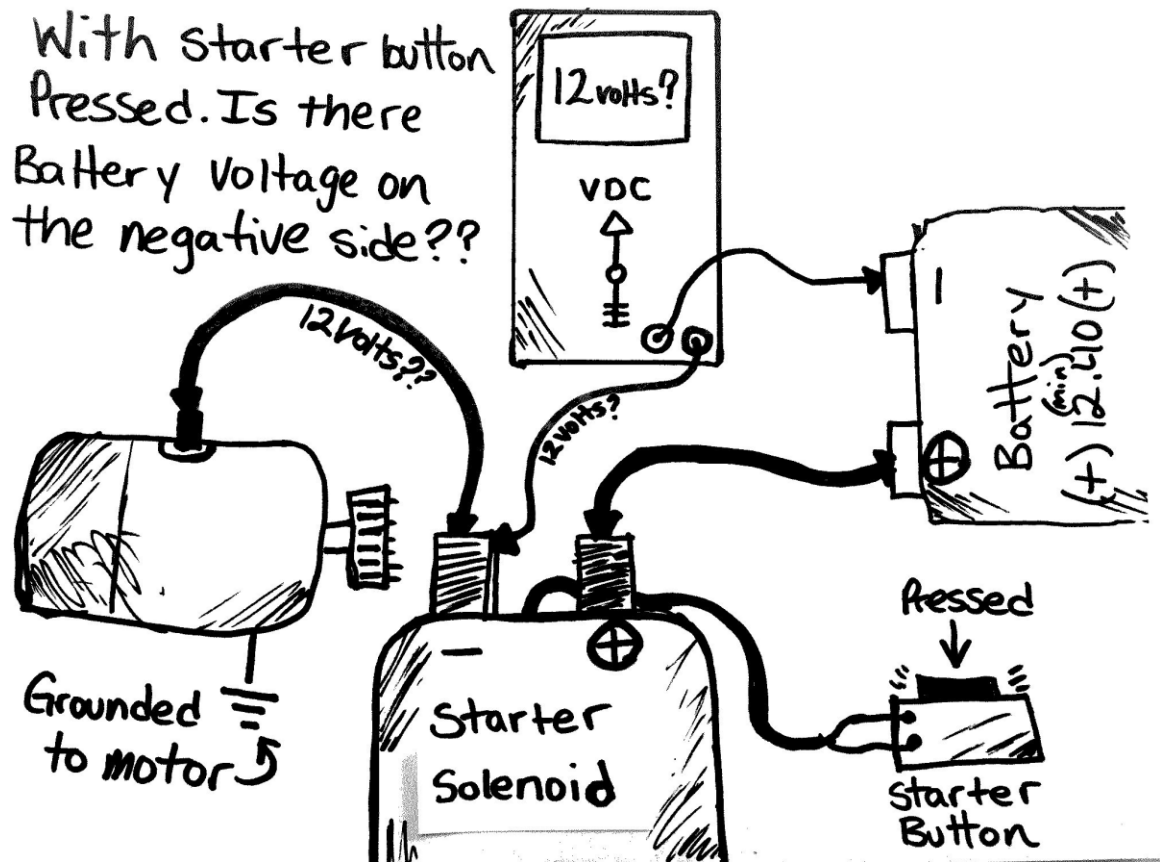 With starter button
Pressed. Is there
Battery Voltage on
the negative side??
12 volts?
VDC
12 volts??
12 volts?
-
Battery
(min)
(+) 12.40 (+)
+
Pressed
-
+
Grounded
to motor
Starter
Solenoid
Starter
Button